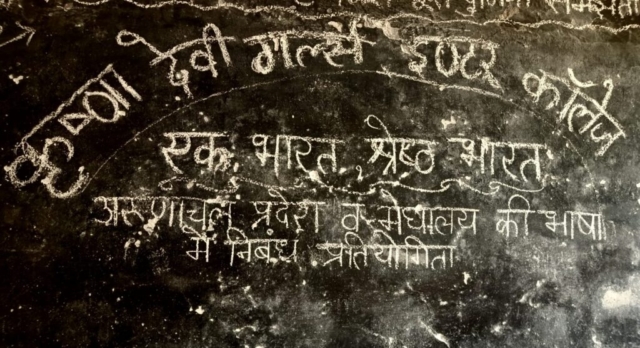 कृष्णा देवी गर्ल्स इण्टर कॉलेज
एक भारत, श्रेष्ठ भारत
अरूणाचल प्रदेश व मेघालय की भाषा
में निबंध प्रतियोगिता